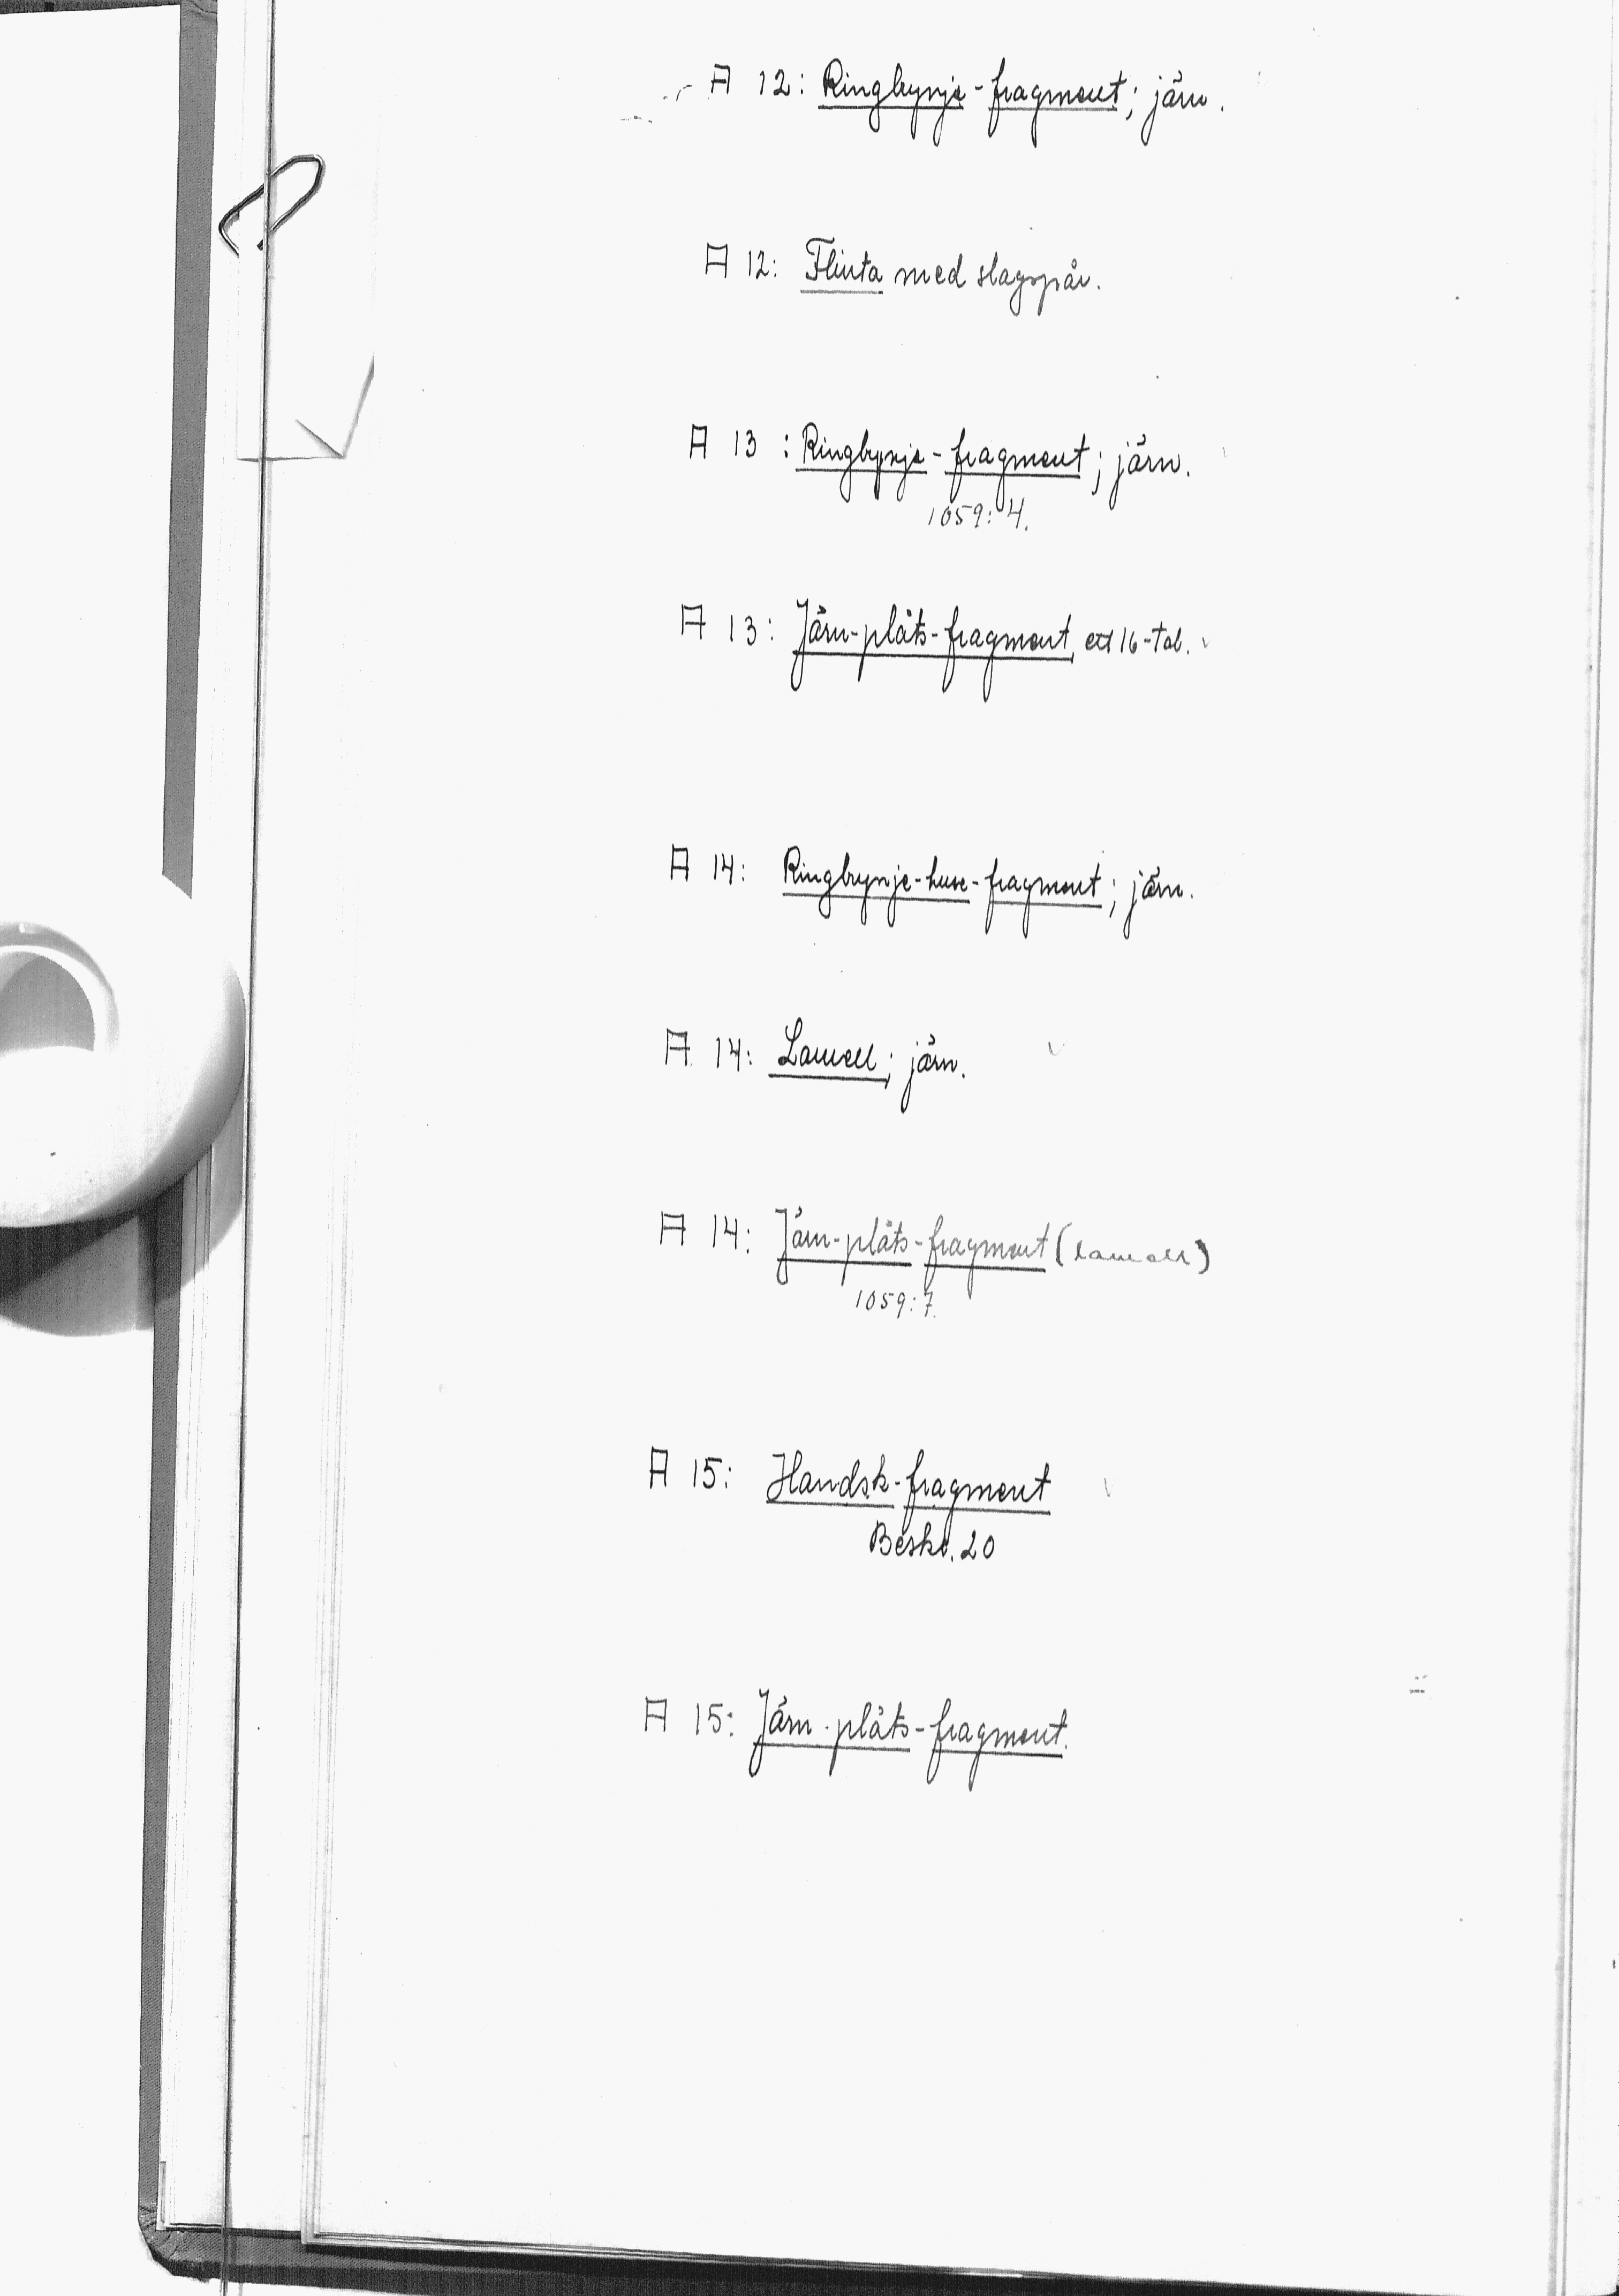 A 12: Ringbrynje-fragment; järn.
A 12: Flinta med slagspår.
A 13: Ringbrynje-fragment; järn.
1059:4.
A 13: Järn-plåts-fragment, ett 16-tal.
A 14: Ringbrynje-huve-fragment; järn.
A 14: Lamell; järn.
A 14: Järn-plåts-fragment (lamell)
1059:7.
A 15: Handsk-fragment
Beskr. 20
A 15: Järn-plåts-fragment.